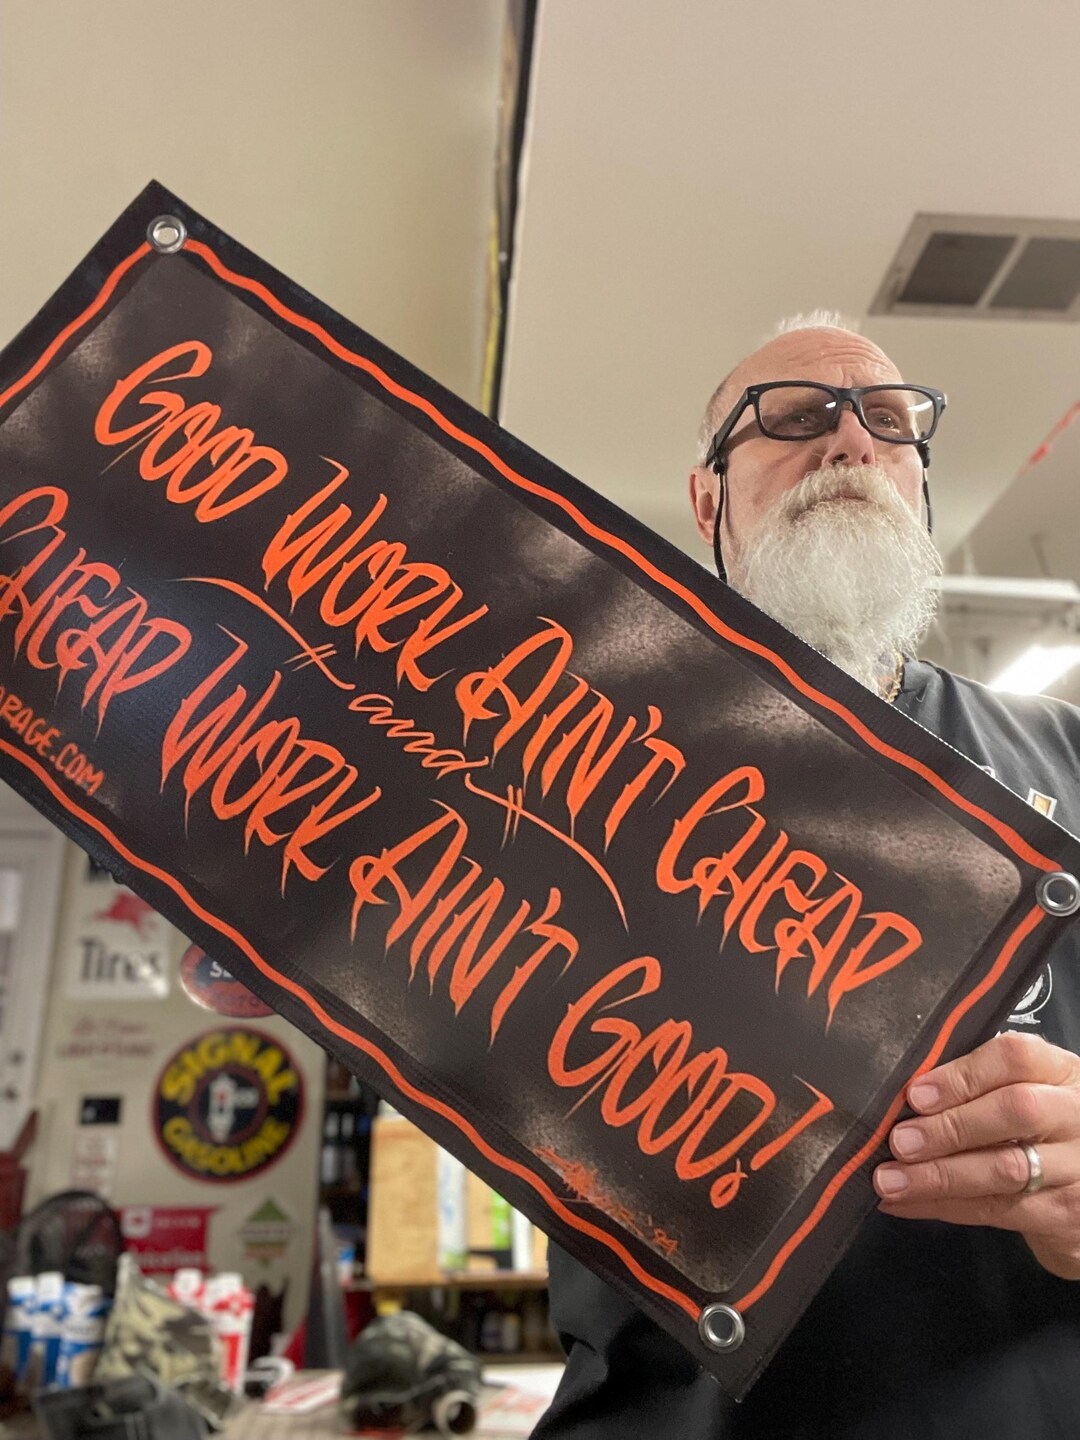 GOOD WORK AIN'T CHEAP
and
CHEAP WORK AIN'T GOOD!
Tires
SIGNAL
GASOLINE